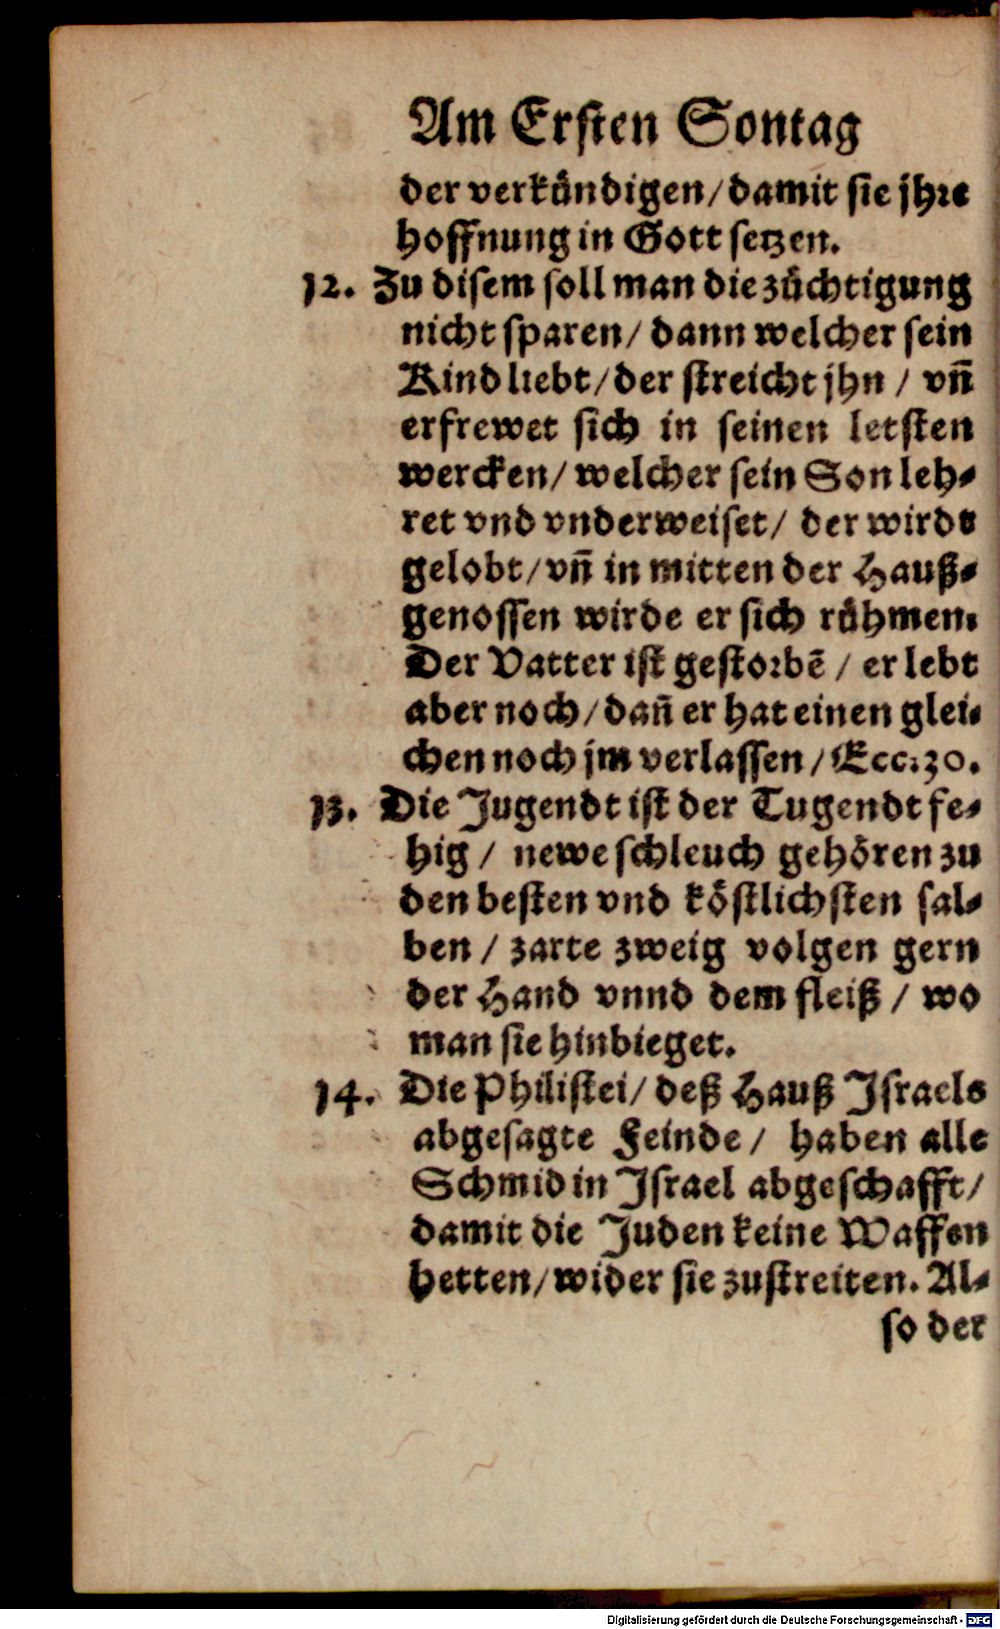 Am Ersten Sontag
der verkündigen/damit sie jhre
hoffnung in Gott setzen.
12. Zu disem soll man die züchtigung
nicht sparen/ dann welcher sein
Kind liebt/der streicht jhn / vñ
erfrewet sich in seinen letsten
wercken/ welcher sein Son leh-
ret vnd vnderweiset/ der wirdt
gelobt/vñ in mitten der Hauß-
genossen wirde er sich rühmen.
Der Vatter ist gestorbē / er lebt
aber noch/dañ er hat einen glei-
chen noch jm verlassen/Ecc.30.
13. Die Jugendt ist der Tugendt fe-
hig / newe schleuch gehören zu
den besten vnd köstlichsten sal-
ben / zarte zweig volgen gern
der Hand vnnd dem fleiß / wo
man sie hinbieget.
14. Die Philistei/ deß Hauß Israels
abgesagte Feinde/ haben alle
Schmid in Israel abgeschafft/
damit die Juden keine Waffen
hetten/wider sie zustreiten. Al-
so der
Digitalisierung gefördert durch die Deutsche Forschungsgemeinschaft - DFG